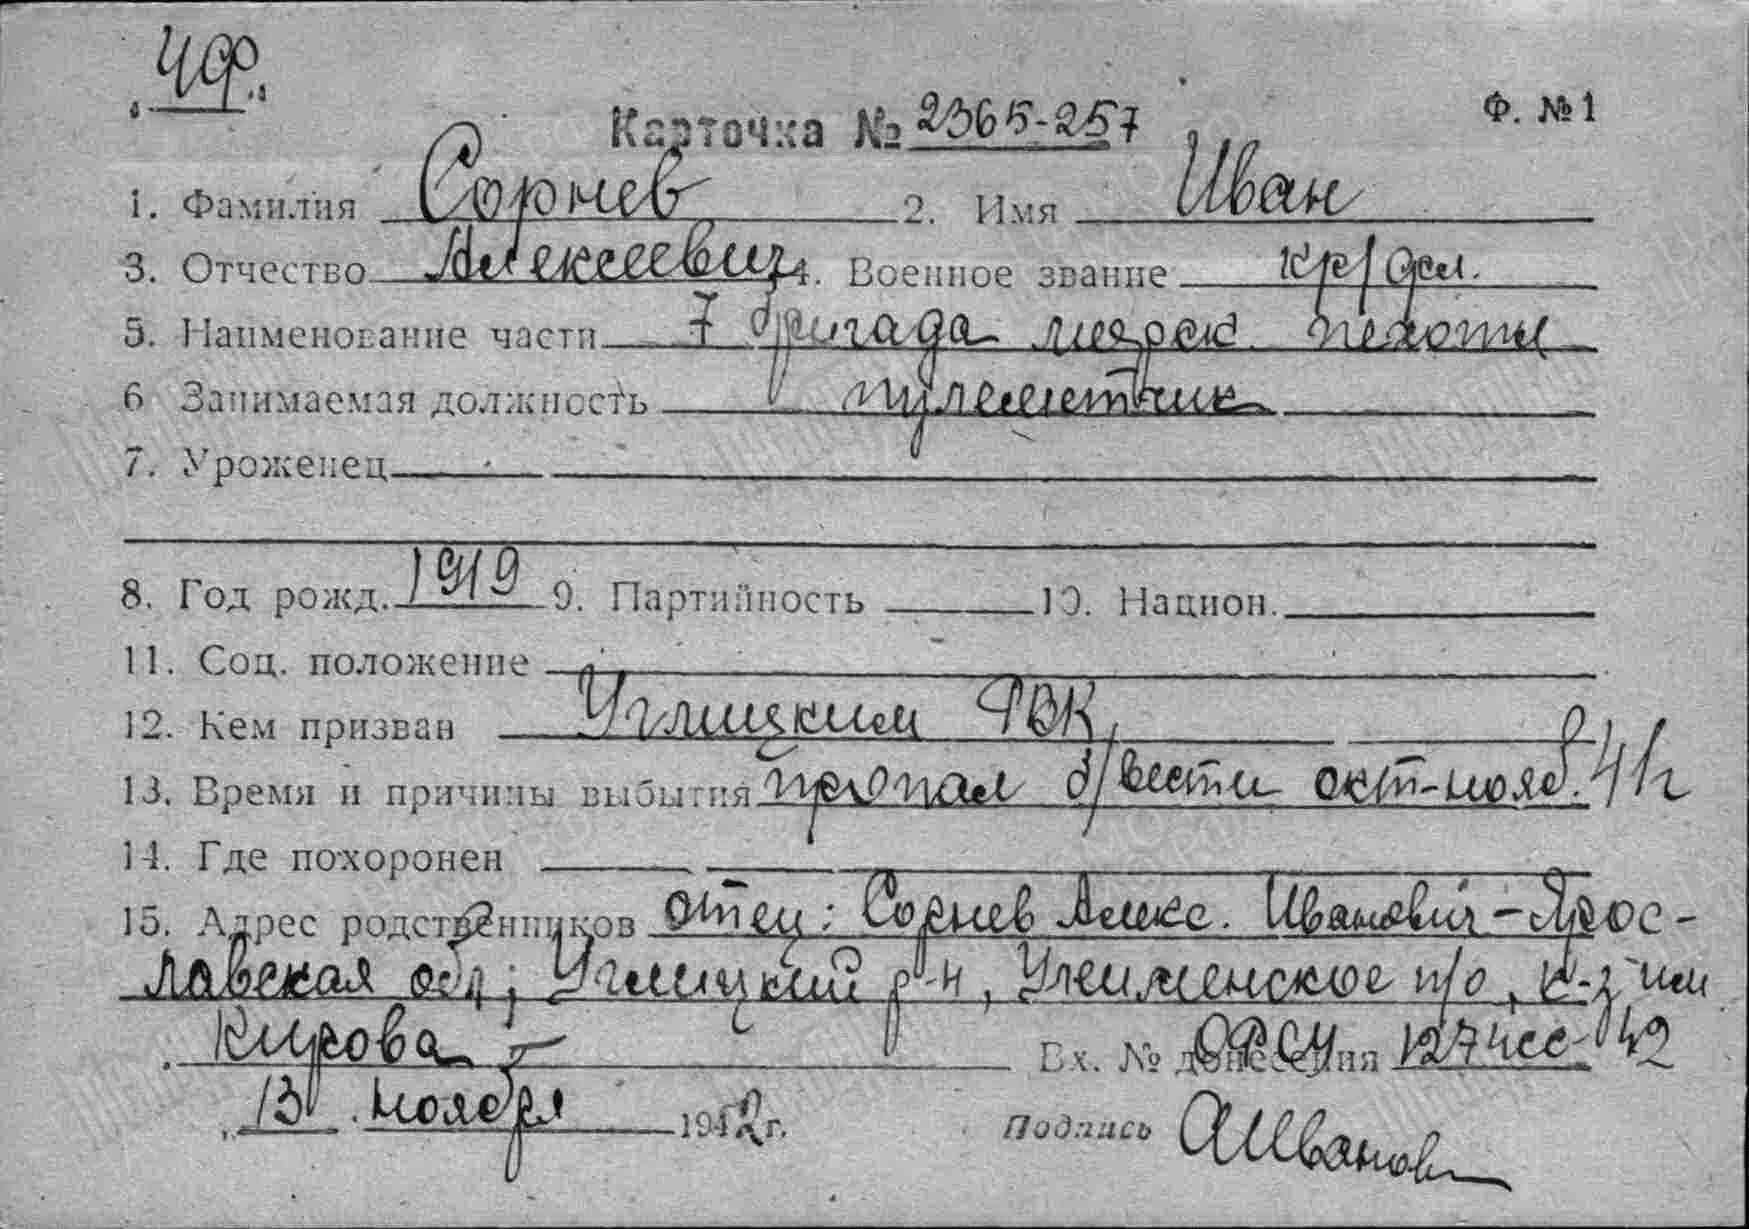 "ЧФ"
Ф. №1
Карточка № 2365-257
1. Фамилия Сорнев 2. Имя Иван
3. Отчество Алексеевич 4. Военное звание кр/фл.
5. Наименование части 7 бригада морск. пехоты
6 Занимаемая должность пулеметчик
7. Уроженец
8. Год рожд. 1919 9. Партийность 10. Национ.
11. Соц. положение
12. Кем призван Угличким РВК,
13. Время и причины выбытия пропал б/вести окт-нояб. 41г
14. Где похоронен
15. Адрес родственников отец: Сорнев Алекс. Иванович - Ярос-
лавская обл; Угличкий р-н, Учеменское п/о, к-з им
Кирова
Вх. № донесения ОРСУ 1274сс-42
13 ноября 1942 г. Подпись АИванов